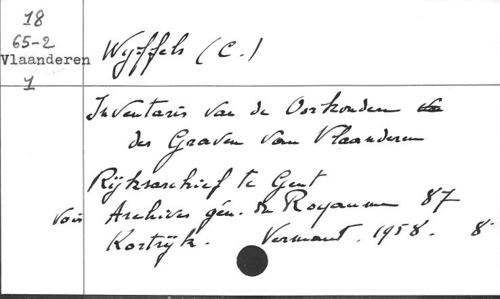 18
65-2
Vlaanderen
1
Wyffels (C.)
Inventaris van de Oorkonden
der Graven van Vlaanderen
Rijksarchief te Gent
voir Archives gén. du Royaume 87
Kortrijk. Vermaut. 1958. 8°